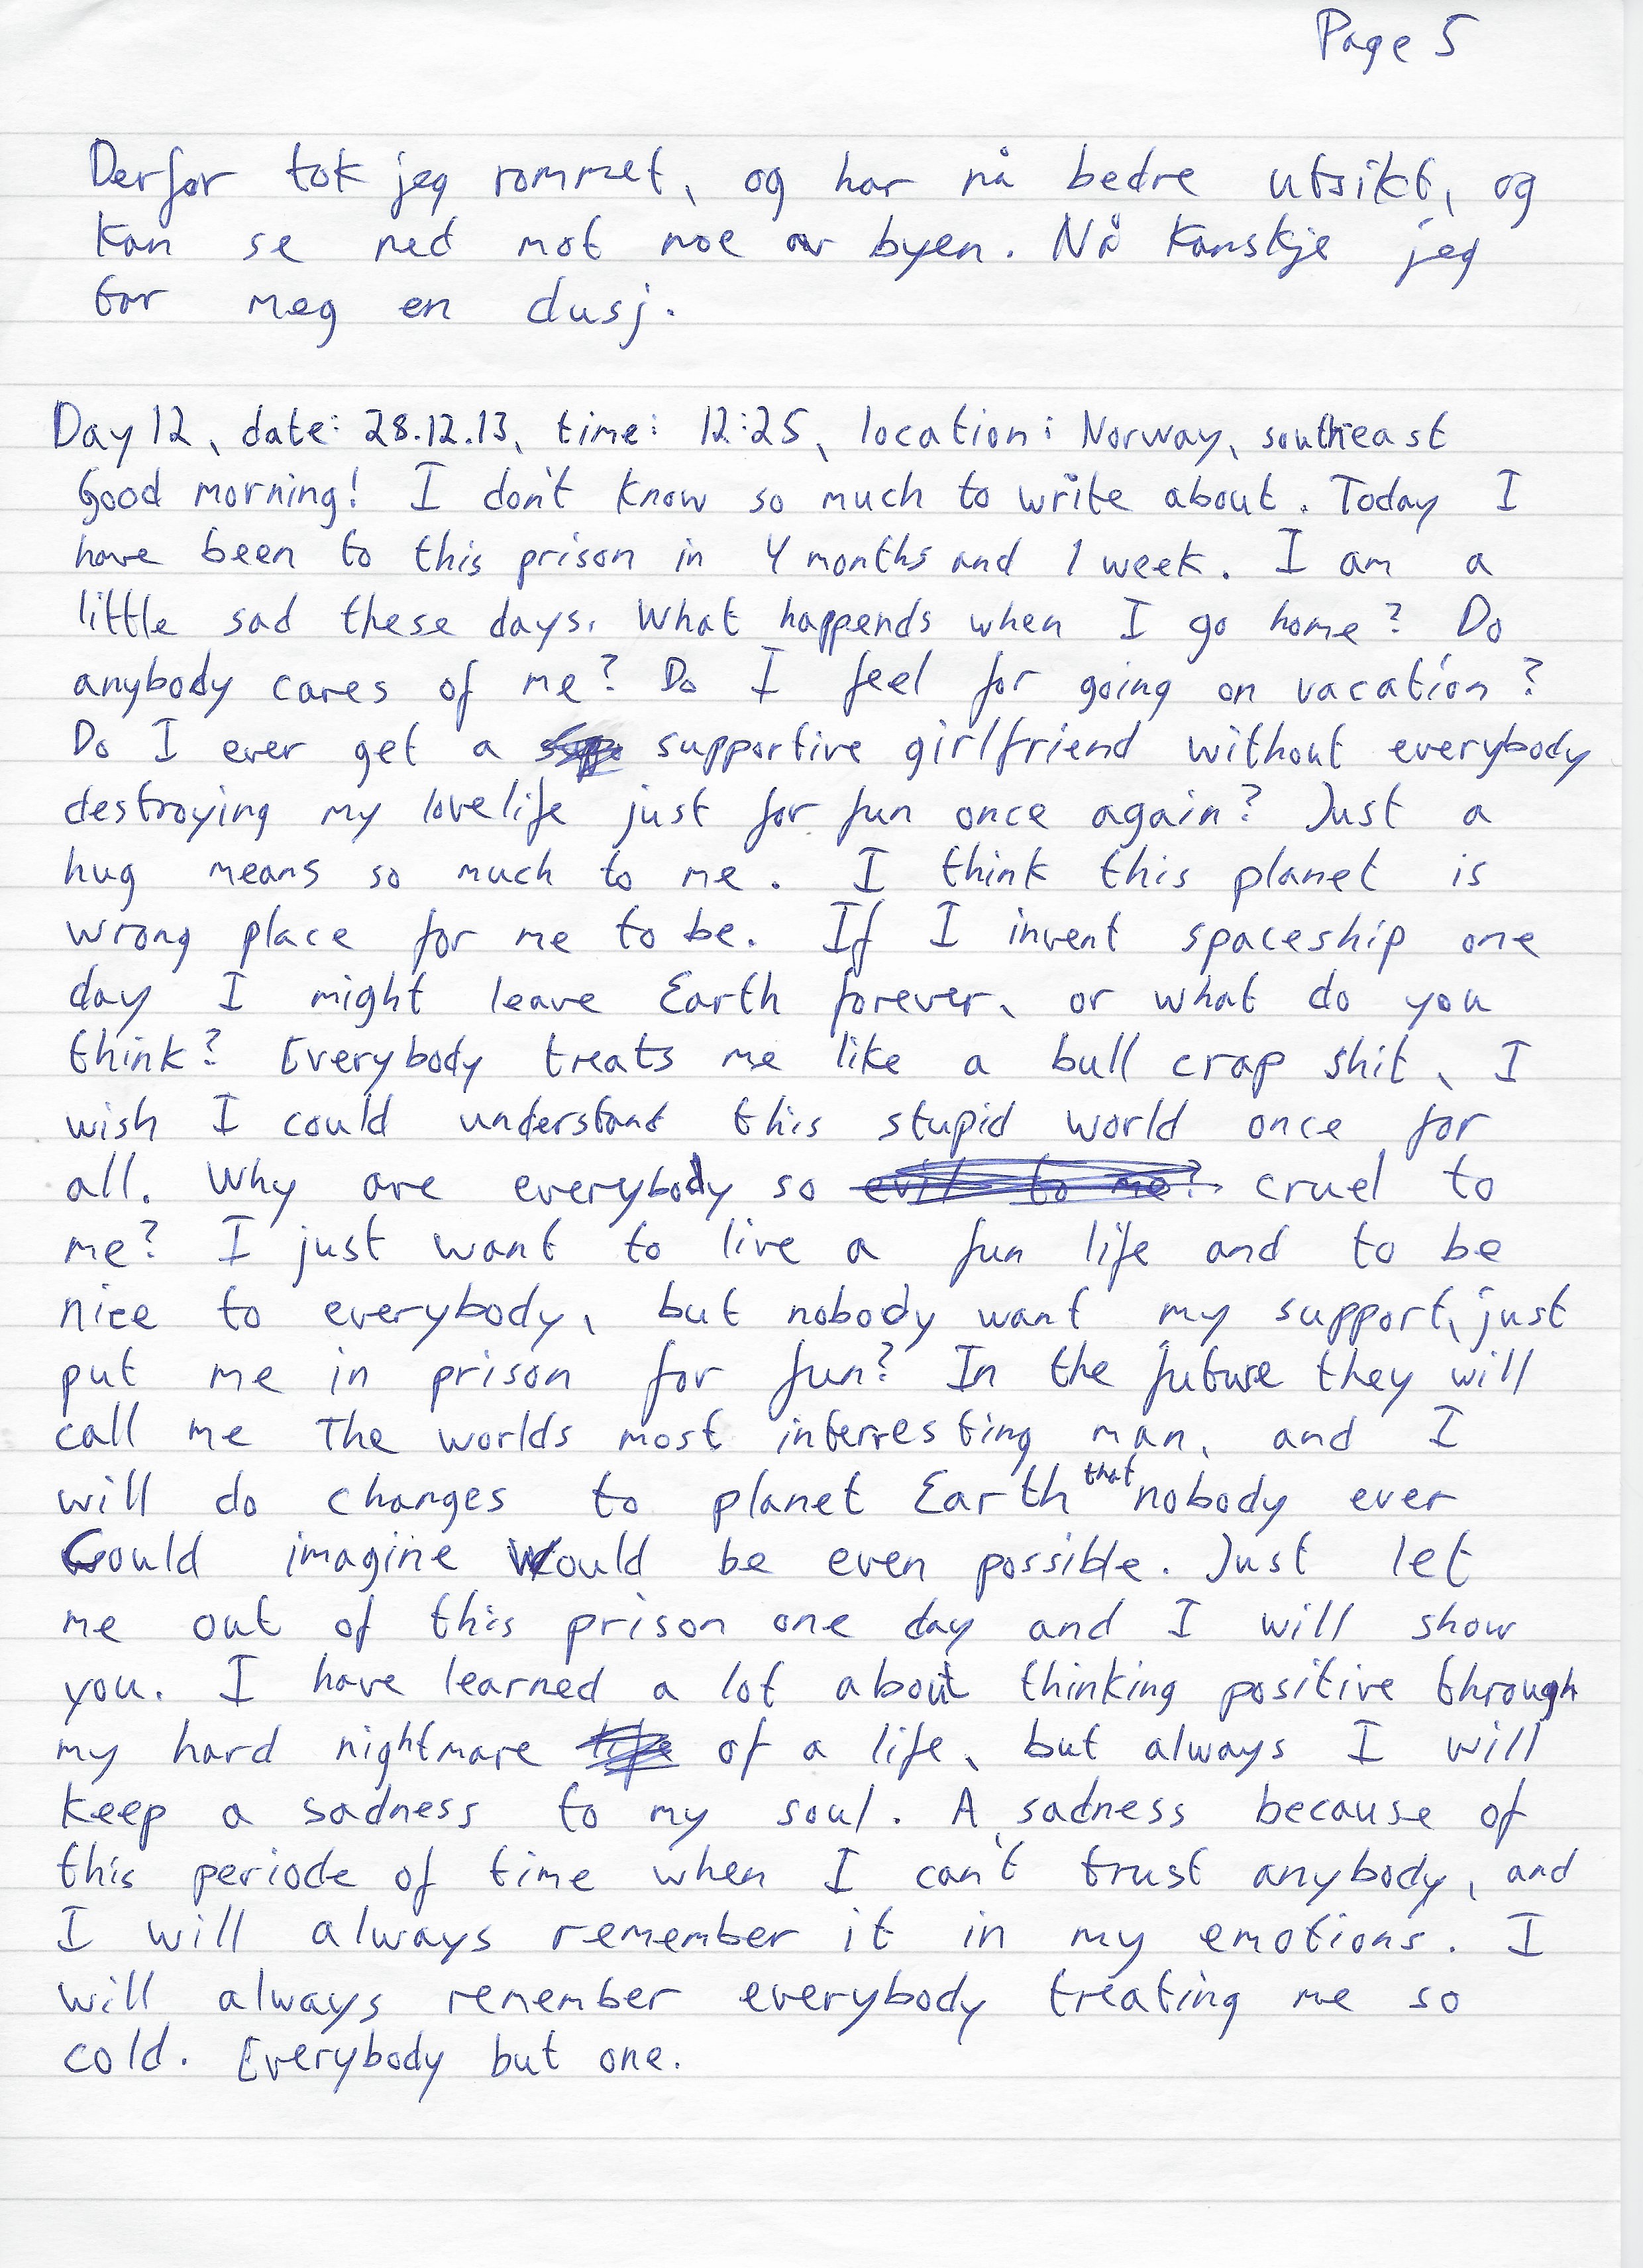 Page 5
Derfor tok jeg rommet, og har nå bedre utsikt, og
kan se ned mot noe av byen. Nå kanskje jeg
tar meg en dusj.
Day 12, date: 28.12.13, time: 12:25, location: Norway, southeast
Good morning! I don't know so much to write about. Today I
have been to this prison in 4 months and 1 week. I am a
little sad these days. What happends when I go home? Do
anybody cares of me? Do I feel for going on vacation?
Do I ever get a supportive girlfriend without everybody
destroying my lovelife just for fun once again? Just a
hug means so much to me. I think this planet is
wrong place for me to be. If I invent spaceship one
day I might leave Earth forever, or what do you
think? Everybody treats me like a bull crap shit, I
wish I could understand this stupid world once for
all. Why are everybody so evil to me? cruel to
me? I just want to live a fun life and to be
nice to everybody, but nobody want my support, just
put me in prison for fun? In the future they will
call me The worlds most interresting man, and I
will do changes to planet Earth that nobody ever
Could imagine would be even possible. Just let
me out of this prison one day and I will show
you. I have learned a lot about thinking positive through
my hard nightmare life of a life, but always I will
keep a sadness to my soul. A sadness because of
this periode of time when I can't trust anybody, and
I will always remember it in my emotions. I
will always remember everybody treating me so
cold. Everybody but one.